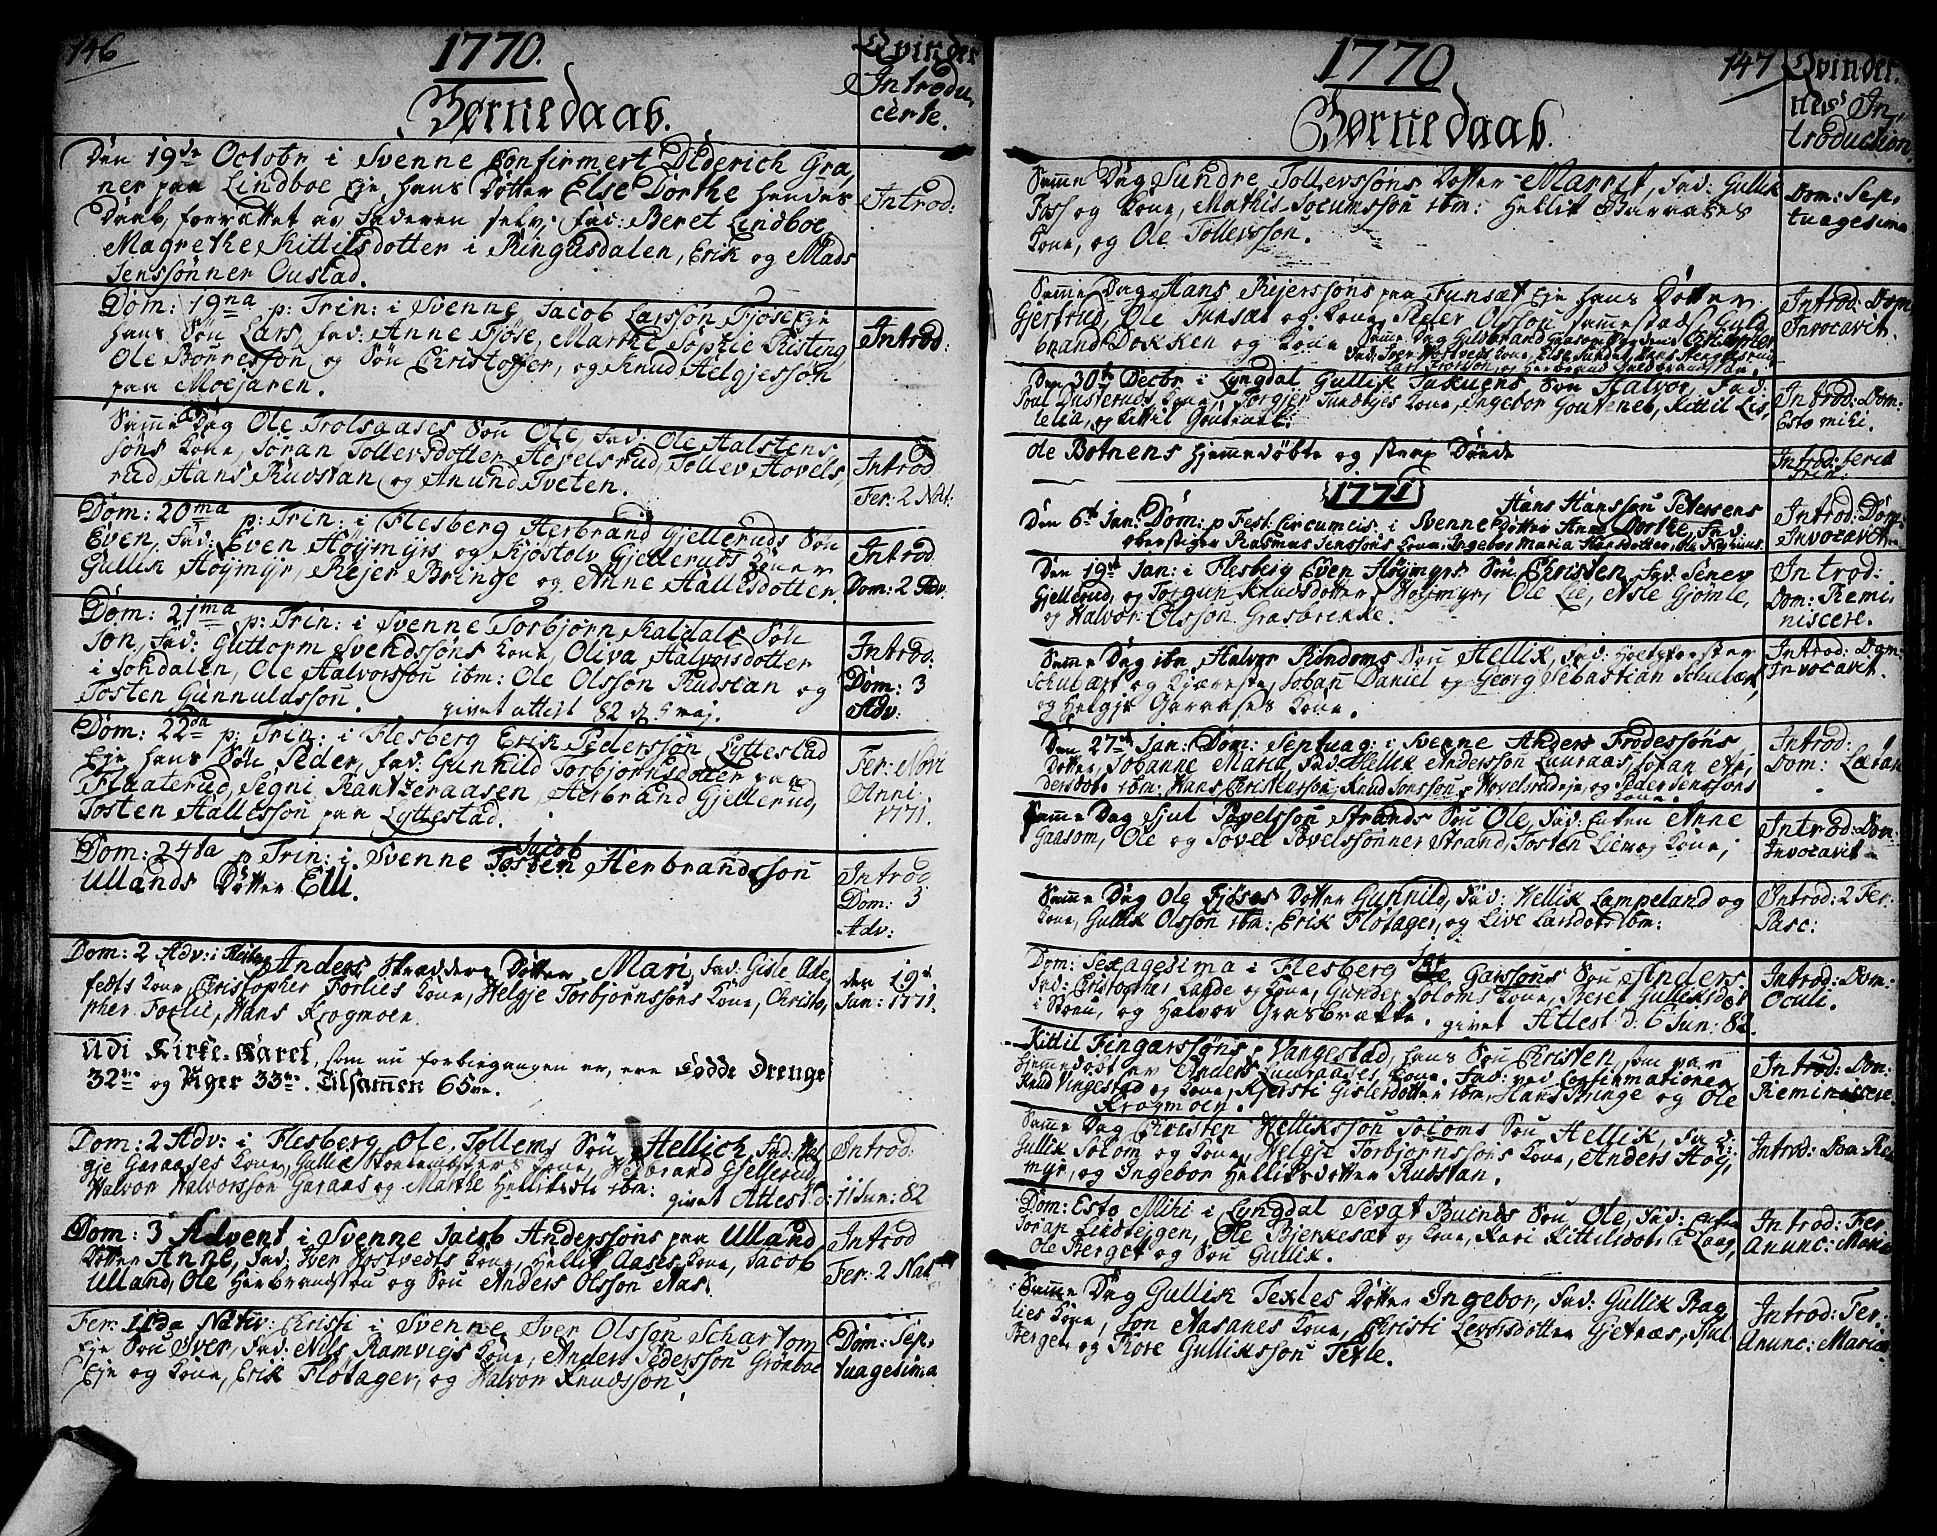 146
1770.
Qvinder
Introdu,
certe.
Børnedaab.
Den 19de Octobr i Svenne Confirmert Diderich Gra,
ner paa Lindboe Eje hans Dotter Else Dorthe hendes
Daab, forrættet av Faderen selv; Fad: Beret Lindboe,
Magrethe Kittilsdotter i Ringasdalen, Erik og Mads
Jenssønner Oustad.
Introd:
Dom: 19na p: Trin: i Svenne Jacob Larssøn Fjøse Eje
hans Søn Lars, Fad: Anne Fjøse, Marthe Sophie Risting,
Ole Borressøn og Søn Christoffer, og Knud Helgjessøn
paa Moesaren.
Introd:
Samme Dag Ole Trolsaases Søn Ole, Fad: Ole Halstens,
søns Kone, Joran Tollevsdotter Hovelsrud, Tollev Hovels,
rud, Hans Rudstan og Anund Tveten.
Introd
Fer: 2 Nat:
Dom: 20ma p: Trin: i Flesberg Herbrand Gjelleruds Søn
Even, Fad: Even Høymyrs og Kjøstolv Gjelleruds Koner
Gullik Høymyr, Rejer Bringe og Anne Hallesdotter.
Introd
Dom: 2 Adv.
Dom: 21ma p: Trin: i Svenne Torbjørn Kaldals Søn
Jon, Fad: Guttorm Svendssøns Kone, Oliva Halvorsdotter
i Jondalen, Ole Halvorssøn ibm: Ole Olssøn Rudstan og
Tosten Gunnuldssøn. givet attest 82 d. 9 maj.
Introd:
Dom: 3
Adv:
Dom: 22da p: Trin: i Flesberg Erik Pederssøn Lyttestad
Eje hans Søn Peder, Fad: Gunhild Torbjørnsdotter paa
Flaaterud, Segni Kantzeraasen, Herbrand Gjellerud,
Tosten Hallessøn paa Lyttestad.
Fer: Novi
Anni:
1771.
Dom: 24da p Trin: i Svenne Tosten Jacob Herbrandssøn
Ullands Dotter Elli.
Introd
Dom: 3
Adv:
Dom: 2 Adv: i Flesberg Anders Skredders Dotter Mari, Fad: Gisle Aase,
fedts Kone, Christopher Forlies Kone, Helgje Torbjørnssøns Kone, Christo,
pher Forlie, Hans Krogmoen.
den 19d.
Jan: 1771.
Udi Kirke-Aaret, som nu forbiegangen er, ere Fødde Drenge
32ve og Piger 33ve. Tilsammen 65ve.
Dom: 2 Adv: i Flesberg Ole Tollefs Søn Hellich, Fad: Hel,
gje Garaases Kone, Kone, Herbrand Gjellerud,
Halvor Halvorssøn Garaas og Marthe Helliksd. ibm: givet Attest d: 11 Jun: 82
Introd:
Dom: 3 Advent i Svenne Jacob Anderssøns paa Ulland
Dotter Anne, Fad: Iver Hostvedts Kone, Hellik Aases Kone, Jacob
Ulland, Ole Herbrandssøn og Søn Anders Olssøn Aas.
Introd
Fer: 2 Nat
Fer: IIda Nativ: Christi i Svenne Iver Olssøn Schartom
Eje Søn Iver, Fad: Nils Ramviegs Kone, Anders Pederssøn Grønboe
Eje og Kone, Erik Flotager, og Halvor Knudssøn.
Dom: Sep,
tuagesima
1770
147
Qvinder,
nes In,
troduction.
Børnedaab.
Samme Dag Sundre Tollevssøns Dotter Marrit, Fad: Gullik
Foss og Kone, Mathis Joçumssøn ibm: Hellik Garaases
Kone, og Ole Tollevssøn.
Dom: Sep,
tuagesima
Samme Dag Hans Rejerssøns paa Funsæt Eje hans Dotter
Gjertrud, Ole Funsæt og Kone, Peder Olssøn sammestæds, Guld,
brand Dokken og Kone Samme Dag Guldbrand Gaasomb Christopher
Fad: Iver Hostvets Kone, Else
og Herbrand Guldbrandssøn.
Introd: Dom
Invocavit.
Den 30te Decbr i Lyngdal Gullik Taskuens Søn Halvor, Fad:
Kone, Torgjer Kone, Ingebor Kittil Lis,
lelia, og Kittil
Introd: Dom:
Esto mihi.
de Botnens hjemmedøbte og strax Døde
Introd: feria
Trin:
1771
Den 6te Jan: Dom: p Fest: Circumcis. i Svenne Hans Hanssøn Petersens
Dotter Anne Dorthe, Fad:
oberstiger Rasmus Jenssøns Kone, Ingebor Maria Hansdotter, Ole
Introd: Dom:
Invocavit
Den 19d Jan: i Flesberg Even Høymyrs Søn Christen, Fad: Senev
Gjellerud, og Torgun Knudsdotter Høymyr, Ole Lie, Asle Gjomle,
og Halvor Olssøn Grasbrekke.
Introd:
Dom: Remi,
niscere.
Samme Dag ibm Halvor Rindoms Søn Hellik, Fad: Holtzførster
Schubart og Kjæreste, Johan Daniel og Georg Sebastian Schubart,
og Helgje Garaases Kone.
Introd: Dom:
Invocavit.
Den 27d Jan: Dom: Septuag: i Svenne Anders Frodessøns
Dotter, Johanne Maria, Fad: Hellik Anderssøn Lauraas, Johan An,
dersdot: ibm: Hans Christenssøn, Knud Jonssøn Hovelsrud eje, og Peder Jenssøns
Kone.
Introd:
Dom: Lætar
Samme Dag Sjul Povelssøn Strands Søn Ole, Fad: Enken Anne
Gaasom, Ole og Povel Povelssønner Strand, Tosten Lier og Kone,
Introd: Dom:
Invocavit
Samme Dag Ole Fjøses Dotter Gunnild, Fad: Hellik Lampeland og
Kone, Gullik Olssøn ibm: Erik Flotager, og Live Larsdot: ibm:
Introd: 2 Fer.
Pasc:
Dom: Sexagesima i Flesberg Ole Garssøns Søn Anders.
Fad: Christopher Lande og Kone, Gunder Soloms Kone, Beret Gulliksdot
i Stenu, og Halvor Grasbrække. givet Attest d: 6 Jun: 82
Introd: Dom:
Oculi.
Kittil Fingarssøns Vangestad, hans Søn Christen, som var
hjemmedøbt av Anders Lauraases Kone. Fad: ved Confirmationen
Knud Vingestad og Kone, Kjersti Gislesdotter ibm, Hans Bringe og Ole
Krogmoen.
Introd: Dom:
Reminiscere.
Samme Dag Christen Hellikssøn Soloms Søn Hellik, Fad:
Gullik Solom og Kone, Helgje Torbjørnssøns Kone, Anders Høy,
myr, og Ingebor Helliksdotter Rudstan.
Introd: Dom Re
Dom: Esto Mihi i Lyngdal Sevat Buinds Søn Ole, Fad: Enken
Joran Lindtejgen, Ole Bjerkesæt og Kone, Kari Kittilsdot: i Laag,
Ole Berget og Søn Gullik.
Introd: Fer.
Anunc: Mariæ
Samme Dag Gullik Texles Dotter Ingebor, Fad: Gullik Bag
lies Kone, Jon Aasanes Kone, Christi Levorsdotter Gjetraas, Sjul
Berget og Rore Gullikssøn Texle.
Introd: Fer.
Anunc: Mariæ